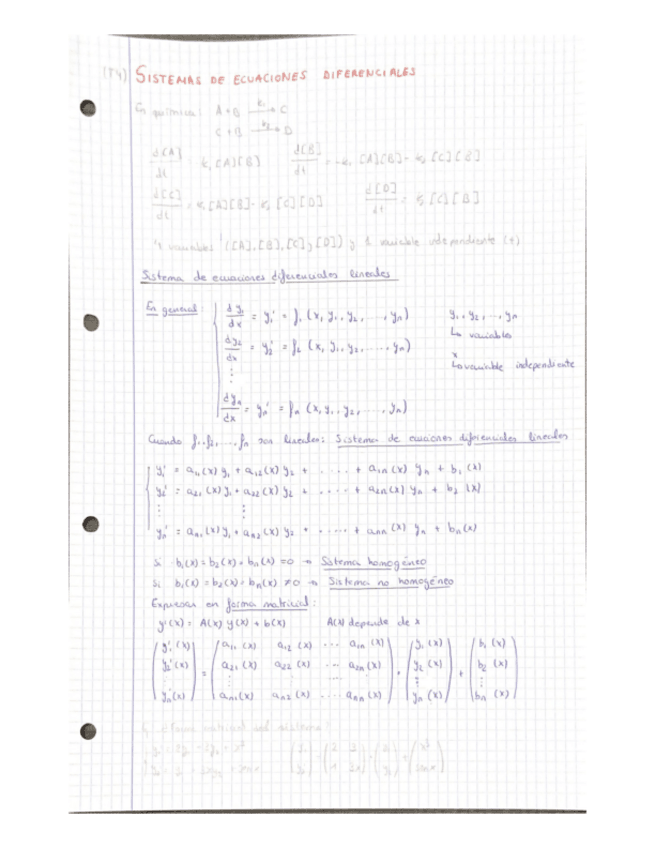 (T4) SISTEMAS DE ECUACIONES DIFERENCIALES
En química: A + B →k₁ C
C + B →k₂ D
d[A]/dt = k₁[A][B]    d[B]/dt = -k₁[A][B] - k₂[C][B]
d[C]/dt = k₁[A][B] - k₂[C][D]    d[D]/dt = k₂[C][B]
4 variables ([A], [B], [C] y [D]) y 1 variable independiente (t)
Sistema de ecuaciones diferenciales lineales
En general: dy₁/dx = y₁' = f₁(x, y₁, y₂, ..., yn)    y₁, y₂, ..., yn
↳ variables
dy₂/dx = y₂' = f₂(x, y₁, y₂, ..., yn)
x
↳ variable independiente
⋮
dyn/dx = yn' = fn(x, y₁, y₂, ..., yn)
Cuando f₁, f₂, ..., fn son lineales: Sistema de ecuaciones diferenciales lineales
y₁' = a₁₁(x) y₁ + a₁₂(x) y₂ + ..... + a₁n(x) yn + b₁(x)
y₂' = a₂₁(x) y₁ + a₂₂(x) y₂ + ..... + a₂n(x) yn + b₂(x)
⋮    ⋮
yn' = an₁(x) y₁ + an₂(x) y₂ + ..... + ann(x) yn + bn(x)
Si b₁(x) = b₂(x) = bn(x) = 0 → Sistema homogéneo
Si b₁(x) = b₂(x) = bn(x) ≠ 0 → Sistema no homogéneo
Expresar en forma matricial:
y'(x) = A(x) y(x) + b(x)    A(x) depende de x
(y₁'(x)) = (a₁₁(x) a₁₂(x) ... a₁n(x)) · (y₁(x)) + (b₁(x))
(y₂'(x)) (a₂₁(x) a₂₂(x) ... a₂n(x)) (y₂(x)) (b₂(x))
⋮ ⋮ ⋮ ⋮ ⋮
(yn'(x)) (an₁(x) an₂(x) ... ann(x)) (yn(x)) (bn(x))
forma matricial del sistema: